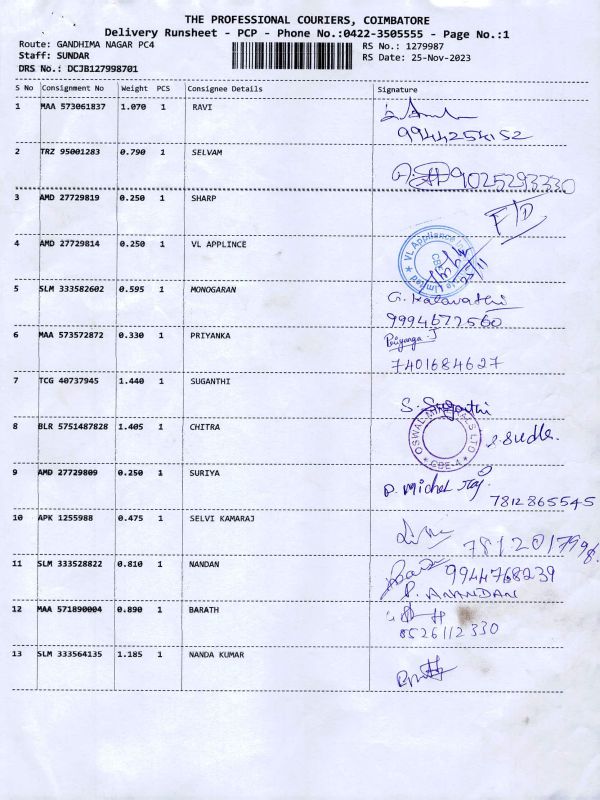 THE PROFESSIONAL COURIERS, COIMBATORE
Delivery Runsheet - PCP - Phone No.:0422-3505555 - Page No.:1
Route: GANDHIMA NAGAR PC4
RS No.: 1279987
Staff: SUNDAR
RS Date: 25-Nov-2023
DRS No.: DCJB127998701
S No Consignment No Weight PCS Consignee Details Signature
1 MAA 573061837 1.070 1 RAVI
9944254152
2 TRZ 95001283 0.790 1 SELVAM
9025293330
3 AMD 27729819 0.250 1 SHARP
F/D
4 AMD 27729814 0.250 1 VL APPLINCE
VL Appliance
CBE
5 SLM 333582602 0.595 1 MONOGARAN
G. Kalavathi
9994672560
6 MAA 573572872 0.330 1 PRIYANKA
Priyanga. J
7401684627
7 TCG 40737945 1.440 1 SUGANTHI
S. Suganthi
8 BLR 5751487828 1.405 1 CHITRA
OSWAL MINERALS LTD
CBE-4
9 AMD 27729809 0.250 1 SURIYA
P. Michel Raj.
7812865545
10 APK 1255988 0.475 1 SELVI KAMARAJ
7812017998.
11 SLM 333528822 0.810 1 NANDAN
9944768239
P. ANANDAN
12 MAA 571890004 0.890 1 BARATH
8526112330
13 SLM 333564135 1.185 1 NANDA KUMAR